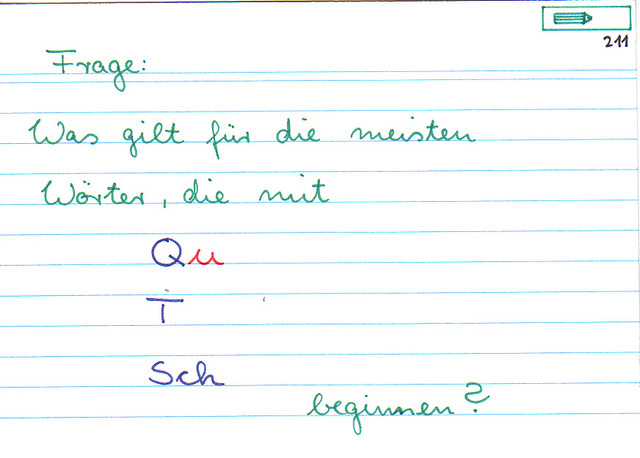 211
Frage:
Was gilt für die meisten
Wörter, die mit
Qu
T
Sch
beginnen?